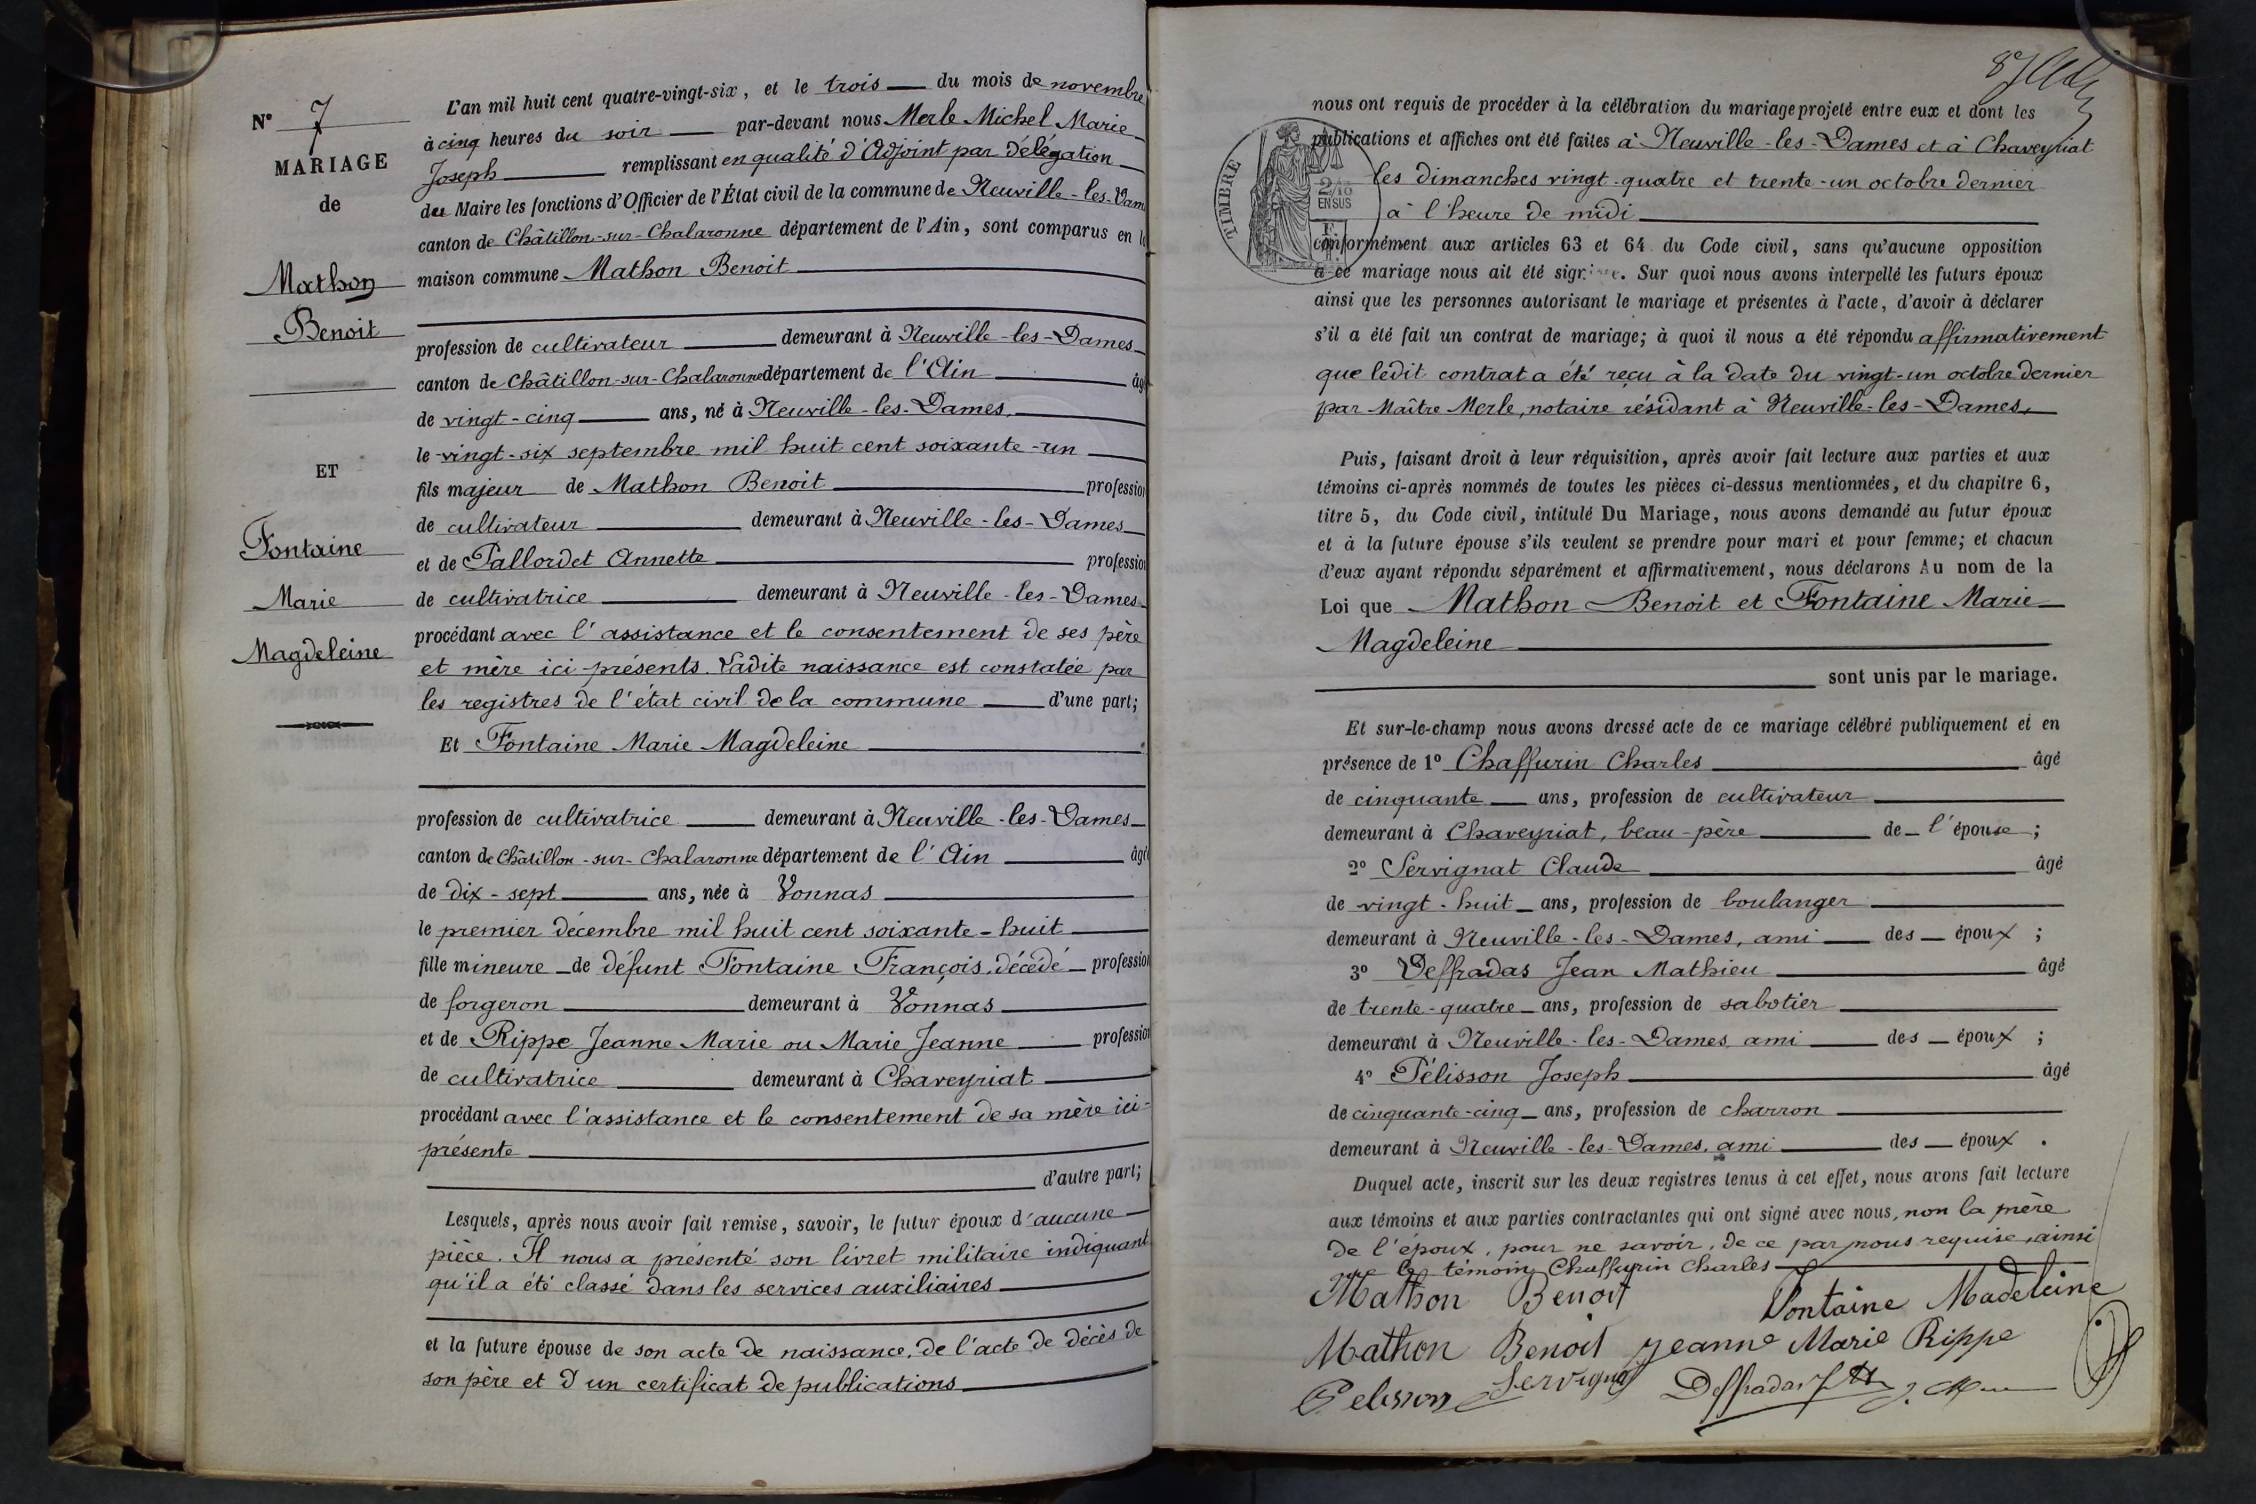 N° 7
MARIAGE
de
Mathon
Benoit
ET
Fontaine
Marie
Magdeleine
L'an mil huit cent quatre-vingt-six, et le trois du mois de novembre
à cinq heures du soir par-devant nous Merle Michel Marie
Joseph remplissant en qualité d'Adjoint par délégation
du Maire les fonctions d'Officier de l'État civil de la commune de Neuville-les-Dam
canton de Châtillon-sur-Chalaronne département de l'Ain, sont comparus en l
maison commune Mathon Benoit
profession de cultivateur demeurant à Neuville-les-Dames
canton de Châtillon-sur-Chalaronne département de l'Ain âg
de vingt-cinq ans, né à Neuville-les-Dames.
le vingt-six septembre mil huit cent soixante-un
fils majeur de Mathon Benoit profession
de cultivateur demeurant à Neuville-les-Dames
et de Pallordet Annette profession
de cultivatrice demeurant à Neuville-les-Dames
procédant avec l'assistance et le consentement de ses père
et mère ici présents. Ladite naissance est constatée par
les registres de l'état civil de la commune d'une part;
Et Fontaine Marie Magdeleine
profession de cultivatrice demeurant à Neuville-les-Dames
canton de Châtillon-sur-Chalaronne département de l'Ain âgé
de dix-sept ans, née à Vonnas
le premier décembre mil huit cent soixante-huit
fille mineure de défunt Fontaine François, décédé profession
de forgeron demeurant à Vonnas
et de Rippe Jeanne Marie ou Marie Jeanne profession
de cultivatrice demeurant à Chaveyriat
procédant avec l'assistance et le consentement de sa mère ici-
présente
d'autre part;
Lesquels, après nous avoir fait remise, savoir, le futur époux d'aucune
pièce. Il nous a présenté son livret militaire indiquant
qu'il a été classé dans les services auxiliaires
et la future épouse de son acte de naissance, de l'acte de décès de
son père et d'un certificat de publications
87
nous ont requis de procéder à la célébration du mariage projeté entre eux et dont les
publications et affiches ont été faites à Neuville-les-Dames et à Chaveyriat
les dimanches vingt-quatre et trente-un octobre dernier
à l'heure de midi
TIMBRE
2/10
EN SUS
conformément aux articles 63 et 64 du Code civil, sans qu'aucune opposition
à ce mariage nous ait été signifiée. Sur quoi nous avons interpellé les futurs époux
ainsi que les personnes autorisant le mariage et présentes à l'acte, d'avoir à déclarer
s'il a été fait un contrat de mariage; à quoi il nous a été répondu affirmativement
que ledit contrat a été reçu à la date du vingt-un octobre dernier
par Maître Merle, notaire résidant à Neuville-les-Dames,
Puis, faisant droit à leur réquisition, après avoir fait lecture aux parties et aux
témoins ci-après nommés de toutes les pièces ci-dessus mentionnées, et du chapitre 6,
titre 5, du Code civil, intitulé Du Mariage, nous avons demandé au futur époux
et à la future épouse s'ils veulent se prendre pour mari et pour femme; et chacun
d'eux ayant répondu séparément et affirmativement, nous déclarons Au nom de la
Loi que Mathon Benoit et Fontaine Marie
Magdeleine
sont unis par le mariage.
Et sur-le-champ nous avons dressé acte de ce mariage célébré publiquement et en
présence de 1° Chaffurin Charles âgé
de cinquante ans, profession de cultivateur
demeurant à Chaveyriat, beau-père de l'épouse;
2° Servignat Claude âgé
de vingt-huit ans, profession de boulanger
demeurant à Neuville-les-Dames, ami des époux;
3° Deffradas Jean Mathieu âgé
de trente-quatre ans, profession de sabotier
demeurant à Neuville-les-Dames, ami des époux;
4° Pélisson Joseph âgé
de cinquante-cinq ans, profession de charron
demeurant à Neuville-les-Dames, ami des époux.
Duquel acte, inscrit sur les deux registres tenus à cet effet, nous avons fait lecture
aux témoins et aux parties contractantes qui ont signé avec nous, non la mère
de l'époux, pour ne savoir, de ce par nous requise, ainsi
que le témoin Chaffurin Charles
Mathon Benoit Fontaine Madeleine
Mathon Benoit Jeanne Marie Rippe
Pelisson Servignat Deffradas